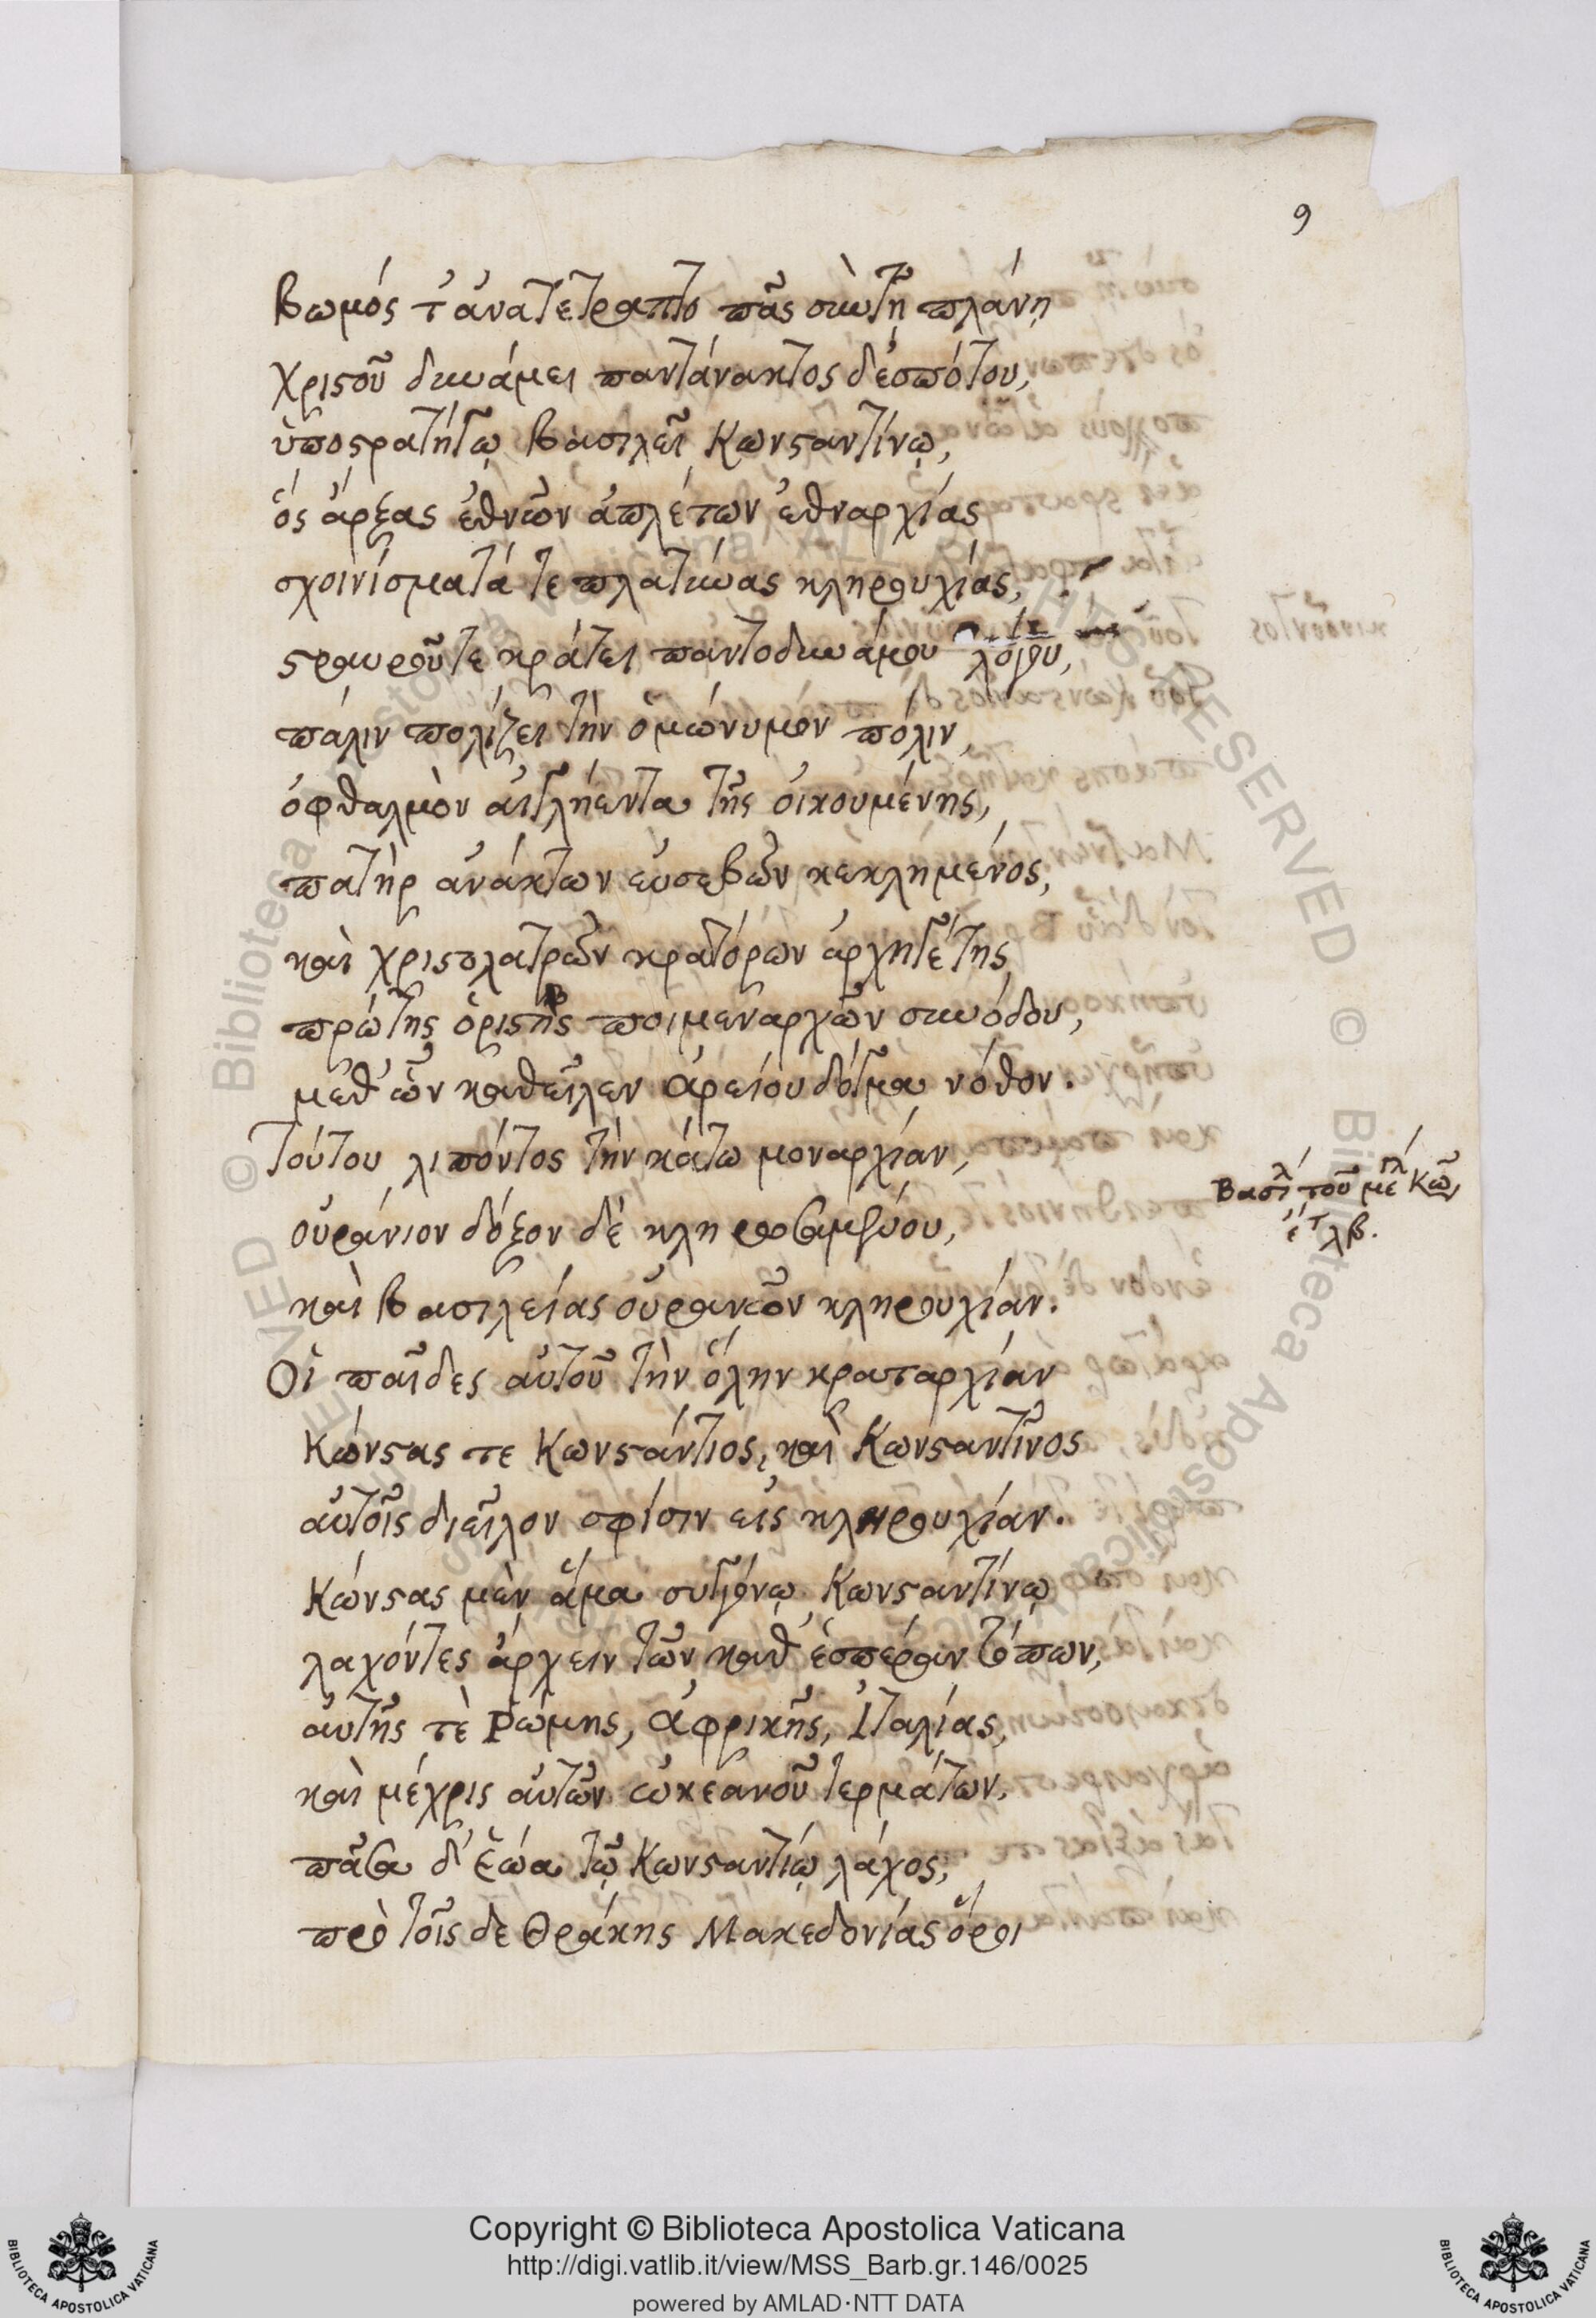 9
βωμός τ' ἀνατέτραπτο πᾶς σὺν τῇ πλάνῃ
χριστοῦ δυνάμει παντάνακτος δεσπότου,
ὑποστρατήγῳ βασιλεῖ Κωνσταντίνῳ,
ὃς ἄρξας ἐθνῶν ἀπλέτων ἐθναρχίας
σχοινίσματά τε πλατύνας κληρουχίας,
σταυροῦ τε κράτει παντοδυνάμου λόγου,
πάλιν πολίζει τὴν ὁμώνυμον πόλιν,
ὀφθαλμὸν αἰγλήεντα τῆς οἰκουμένης,
πατὴρ ἀνάκτων εὐσεβῶν κεκλημένος,
καὶ χριστολατρῶν κρατόρων ἀρχηγέτης
πρώτης ὁριστὴς ποιμεναρχῶν συνόδου,
μεθ' ὧν καθεῖλεν ἀρείου δόγμα νόθον.
Τούτου λιπόντος τὴν κάτω μοναρχίαν,
οὐράνιον δόξον δὲ κληρωσαμένου,
καὶ βασιλείας οὐρανῶν κληρουχίαν.
Βασιλ τοῦ μεγλ Κω
ἔτ λβ.
Οἱ παῖδες αὐτοῦ τὴν ὅλην κραταρχίαν
Κώνστας τε Κωνστάντιος, καὶ Κωνσταντῖνος
αὐτοῖς διεῖλον σφίσιν εἰς κληρουχίαν.
Κώνστας μὲν ἅμα συγγόνῳ Κωνσταντίνῳ
λαχόντες ἄρχειν τῶν καθ' ἑσπέραν τόπων,
αὐτῆς τὲ Ῥώμης, ἀφρικῆς, Ἰταλίας,
καὶ μέχρις αὐτῶν ὠκεανοῦ τερμάτων,
πᾶσα δ' ἑῴα τῷ Κωνσταντίῳ λάχος,
πρὸ τοῖς δὲ Θράκης Μακεδονίας ὅροι
Copyright © Biblioteca Apostolica Vaticana
http://digi.vatlib.it/view/MSS_Barb.gr.146/0025
powered by AMLAD·NTT DATA